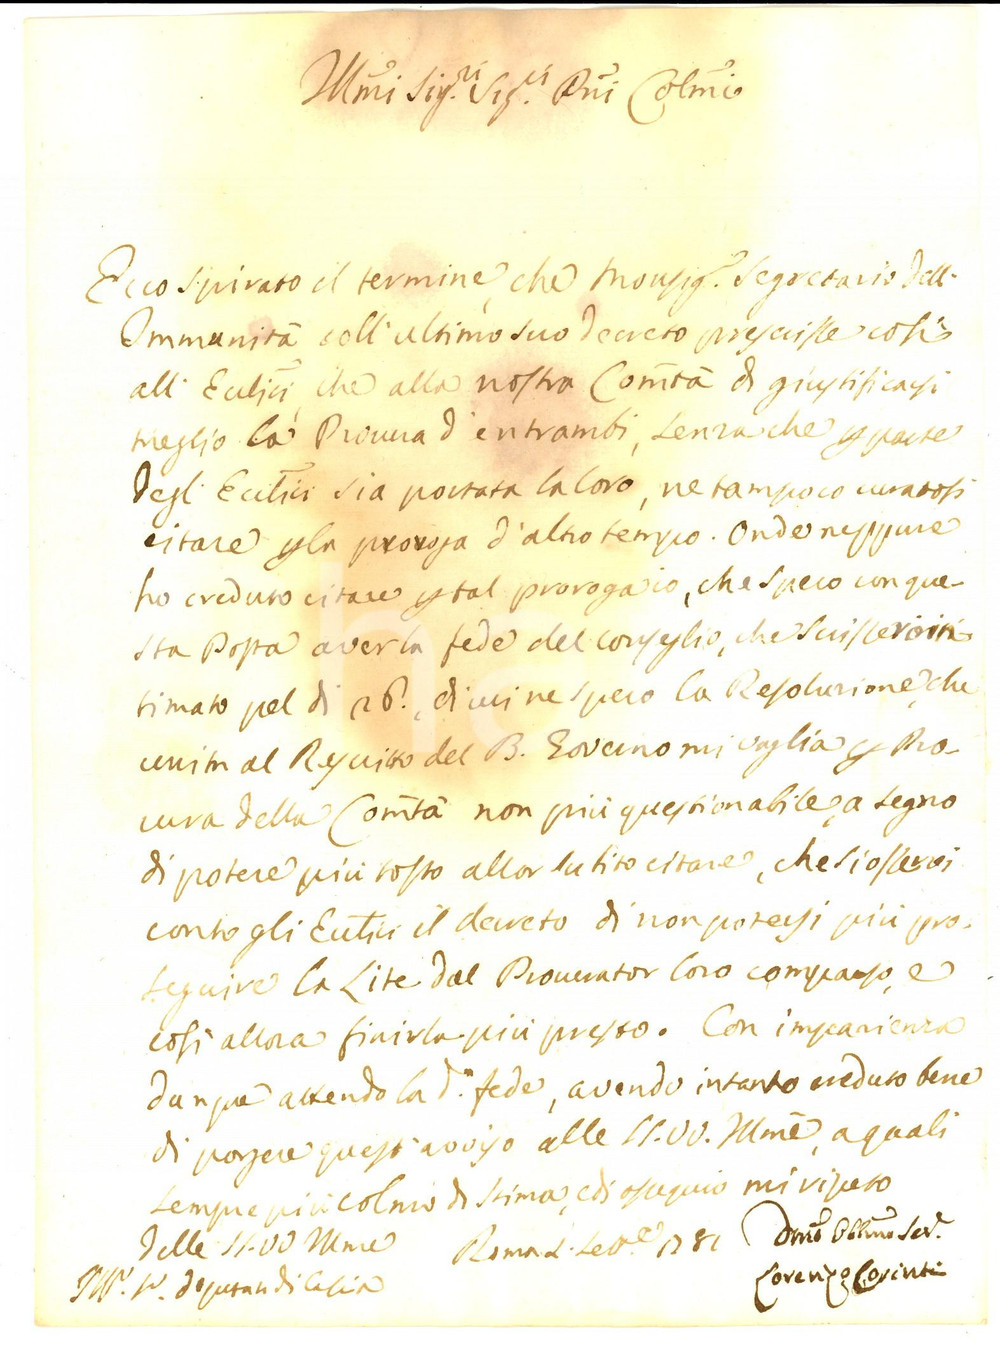 Illmi Sigri Sigri Pni Colmi
Ecco spirato il termine, che Monsigr. Segretario dell'
Immunità coll'ultimo suo decreto prescisse così
all' Eccl̄ci, che alla nostra Com̄tà di giustificarsi
meglio la Procura d'entrambi, senza che p parte
degl' Eccl̄ci sia portata la loro, ne tampoco curatosi
citare p la proroga d'altro tempo. Onde neppure
ho creduto citare p tal proroga io, che spero con que-
sta Posta aver la fede del consiglio, che scissero inti-
timato pel dì 26., di cui ne spero la Resoluzione, che
unita al Rescritto del B. Governo mi vaglia p Pro-
cura della Com̄tà non più questionabile, a segno
di potere più tosto allor subito citare, che si osservi
contro gli Eccl̄ci il decreto di non potersi più pro-
seguire la Lite dal Procurator loro comparso, e
così allora finirla più presto. Con impazienza
dunque attendo la da. fede, avendo intanto creduto bene
di porgere quest'avviso alle SS.VV. Illme, a quali
sempre più colmo di stima, ed ossequio mi ripeto
Delle SS.VV Illme Roma 2. Sette 1781 Dmo Obbmo Ser.
Illri. Sri. deputati di Cascia Lorenzo Corinti